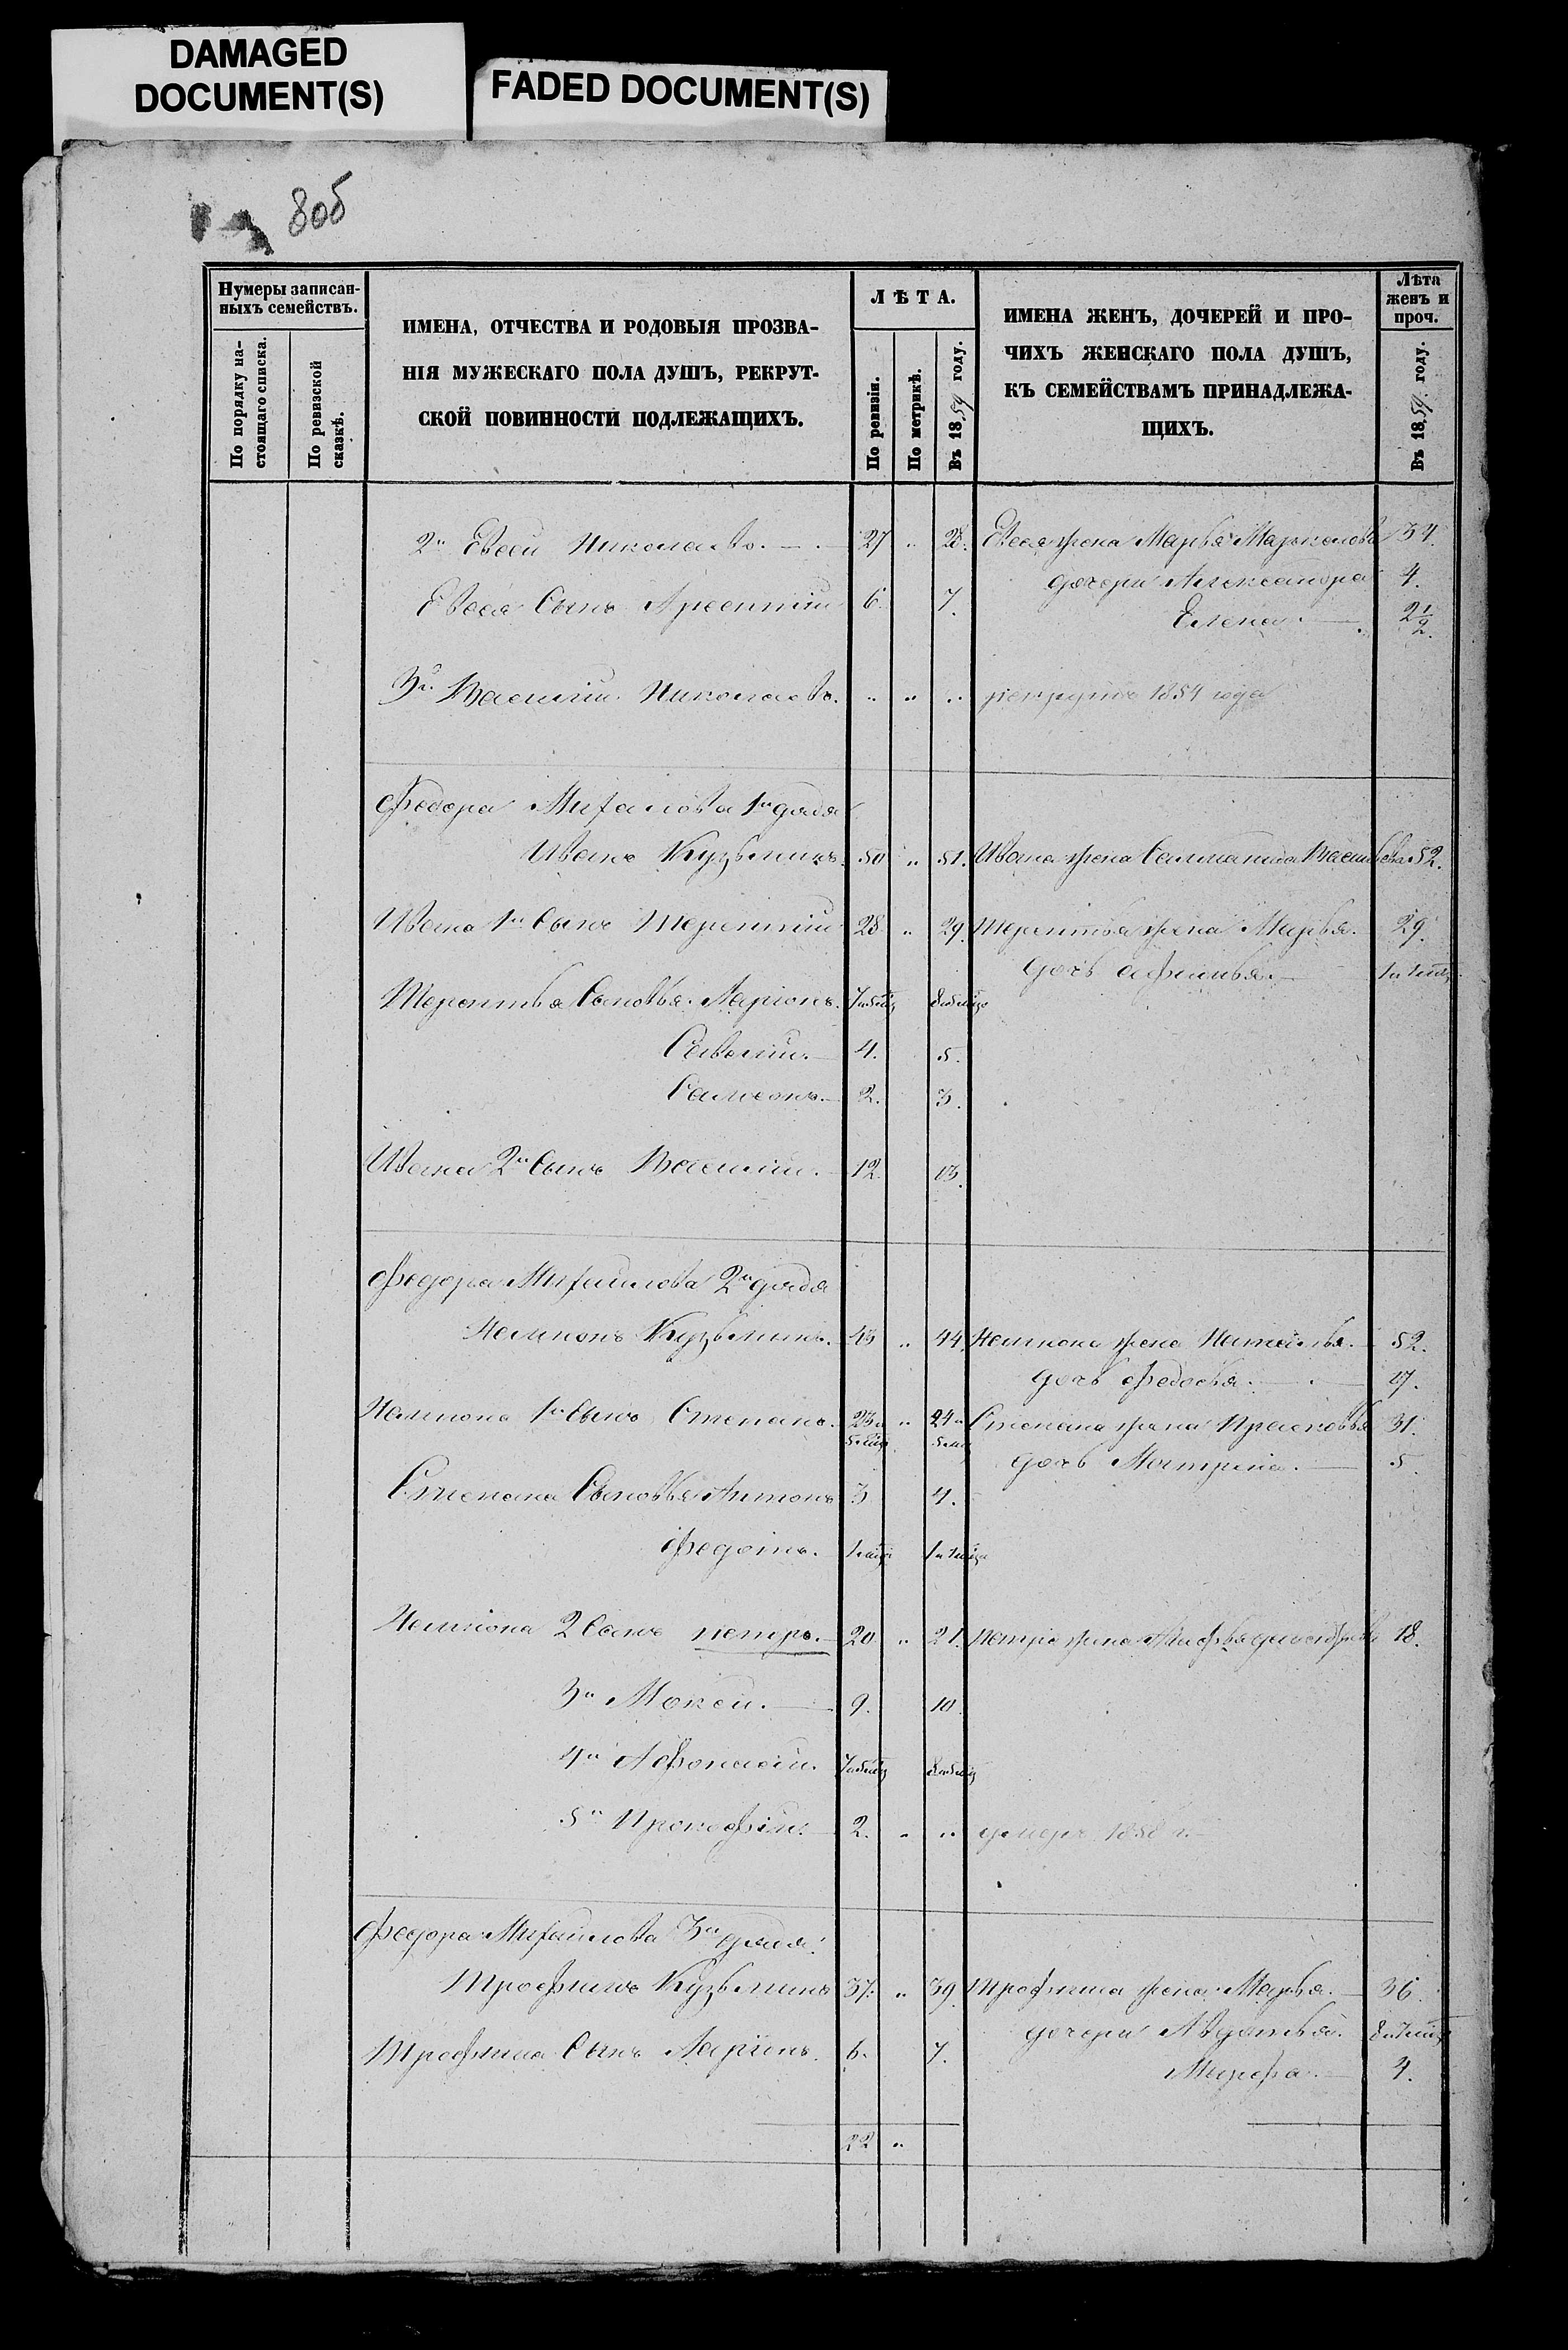 DAMAGED
DOCUMENT(S)
FADED DOCUMENT(S)
80б
Нумеры записан-
ныхъ семействъ.
По порядку на-
стоящаго списка.
По ревизской
сказкѣ.
ИМЕНА, ОТЧЕСТВА И РОДОВЫЯ ПРОЗВА-
НІЯ МУЖЕСКАГО ПОЛА ДУШЪ, РЕКРУТ-
СКОЙ ПОВИННОСТИ ПОДЛЕЖАЩИХЪ.
ЛѢТА.
По ревизіи.
По метрикѣ.
Въ 1859 году.
ИМЕНА ЖЕНЪ, ДОЧЕРЕЙ И ПРО-
ЧИХЪ ЖЕНСКАГО ПОЛА ДУШЪ,
КЪ СЕМЕЙСТВАМЪ ПРИНАДЛЕЖА-
ЩИХЪ.
Лѣта
женъ и
проч.
Въ 1859 году.
2й Евсей Николаевъ. 27 „ 28. Евсея жена Марья 34.
дочери Александра 4.
Евсея Сынъ Арсентій 6. 7.
Елена. 2 1/2.
3й Василій Николаевъ. „ „ „ рекрутъ 1854 года
Федора Михайлова 1й дядя
Иванъ Кузьминъ. 50 „ 51. Ивана жена 52.
Ивана 1й Сынъ Терентій 28 „ 29. Терентья жена Марья. 29.
дочь Афимья.
Терентья Сыновья Ларіонъ.
Савелій. 4. 5.
Самсонъ. 2. 3.
Ивана 2й Сынъ Василій. 12. 13.
Федора Михайлова 2й дядя
Филимонъ Кузьминъ. 43 „ 44. жена Наталья. 52.
дочь Федосья. 17.
1й Сынъ Степанъ. 23 „ 24 Степана жена Прасковья 31.
дочь Матрена. 5.
Степана Сыновья Антонъ 3 4.
Федотъ.
2 Сынъ петръ. 20 „ 21. петра жена 18.
3й Мокей. 9. 10.
4й Афонасей.
5й Прокофій. 2. „ „ умеръ 1858 г.
Федора Михайлова 3й дядя.
Трофимъ Кузьминъ 37. „ 39. Трофима жена Марья. 36.
дочери Авдотья.
Трофима Сынъ Ларіонъ. 6. 7.
Марфа. 4.
22 „